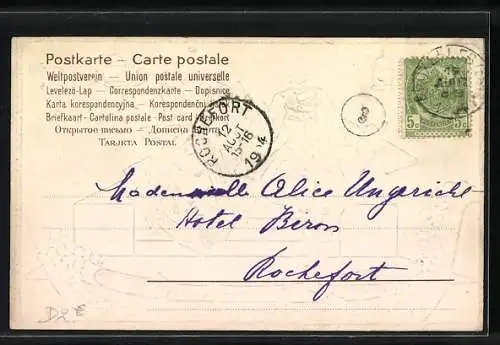 Postkarte – Carte postale
Weltpostverein – Union postale universelle
Levelező-Lap – Correspondenzkarte – Dopisnice
Karta korespondencyjna – Korespondenční
Briefkaart – Cartolina postale – Post card –
Открытое письмо – Дописна
TARJETA POSTAL
ROCHEFORT
12
AOUT
15-16
19
5c 5c
Mademoiselle Alice Ungericht
Hotel Biron
Rochefort
D2€